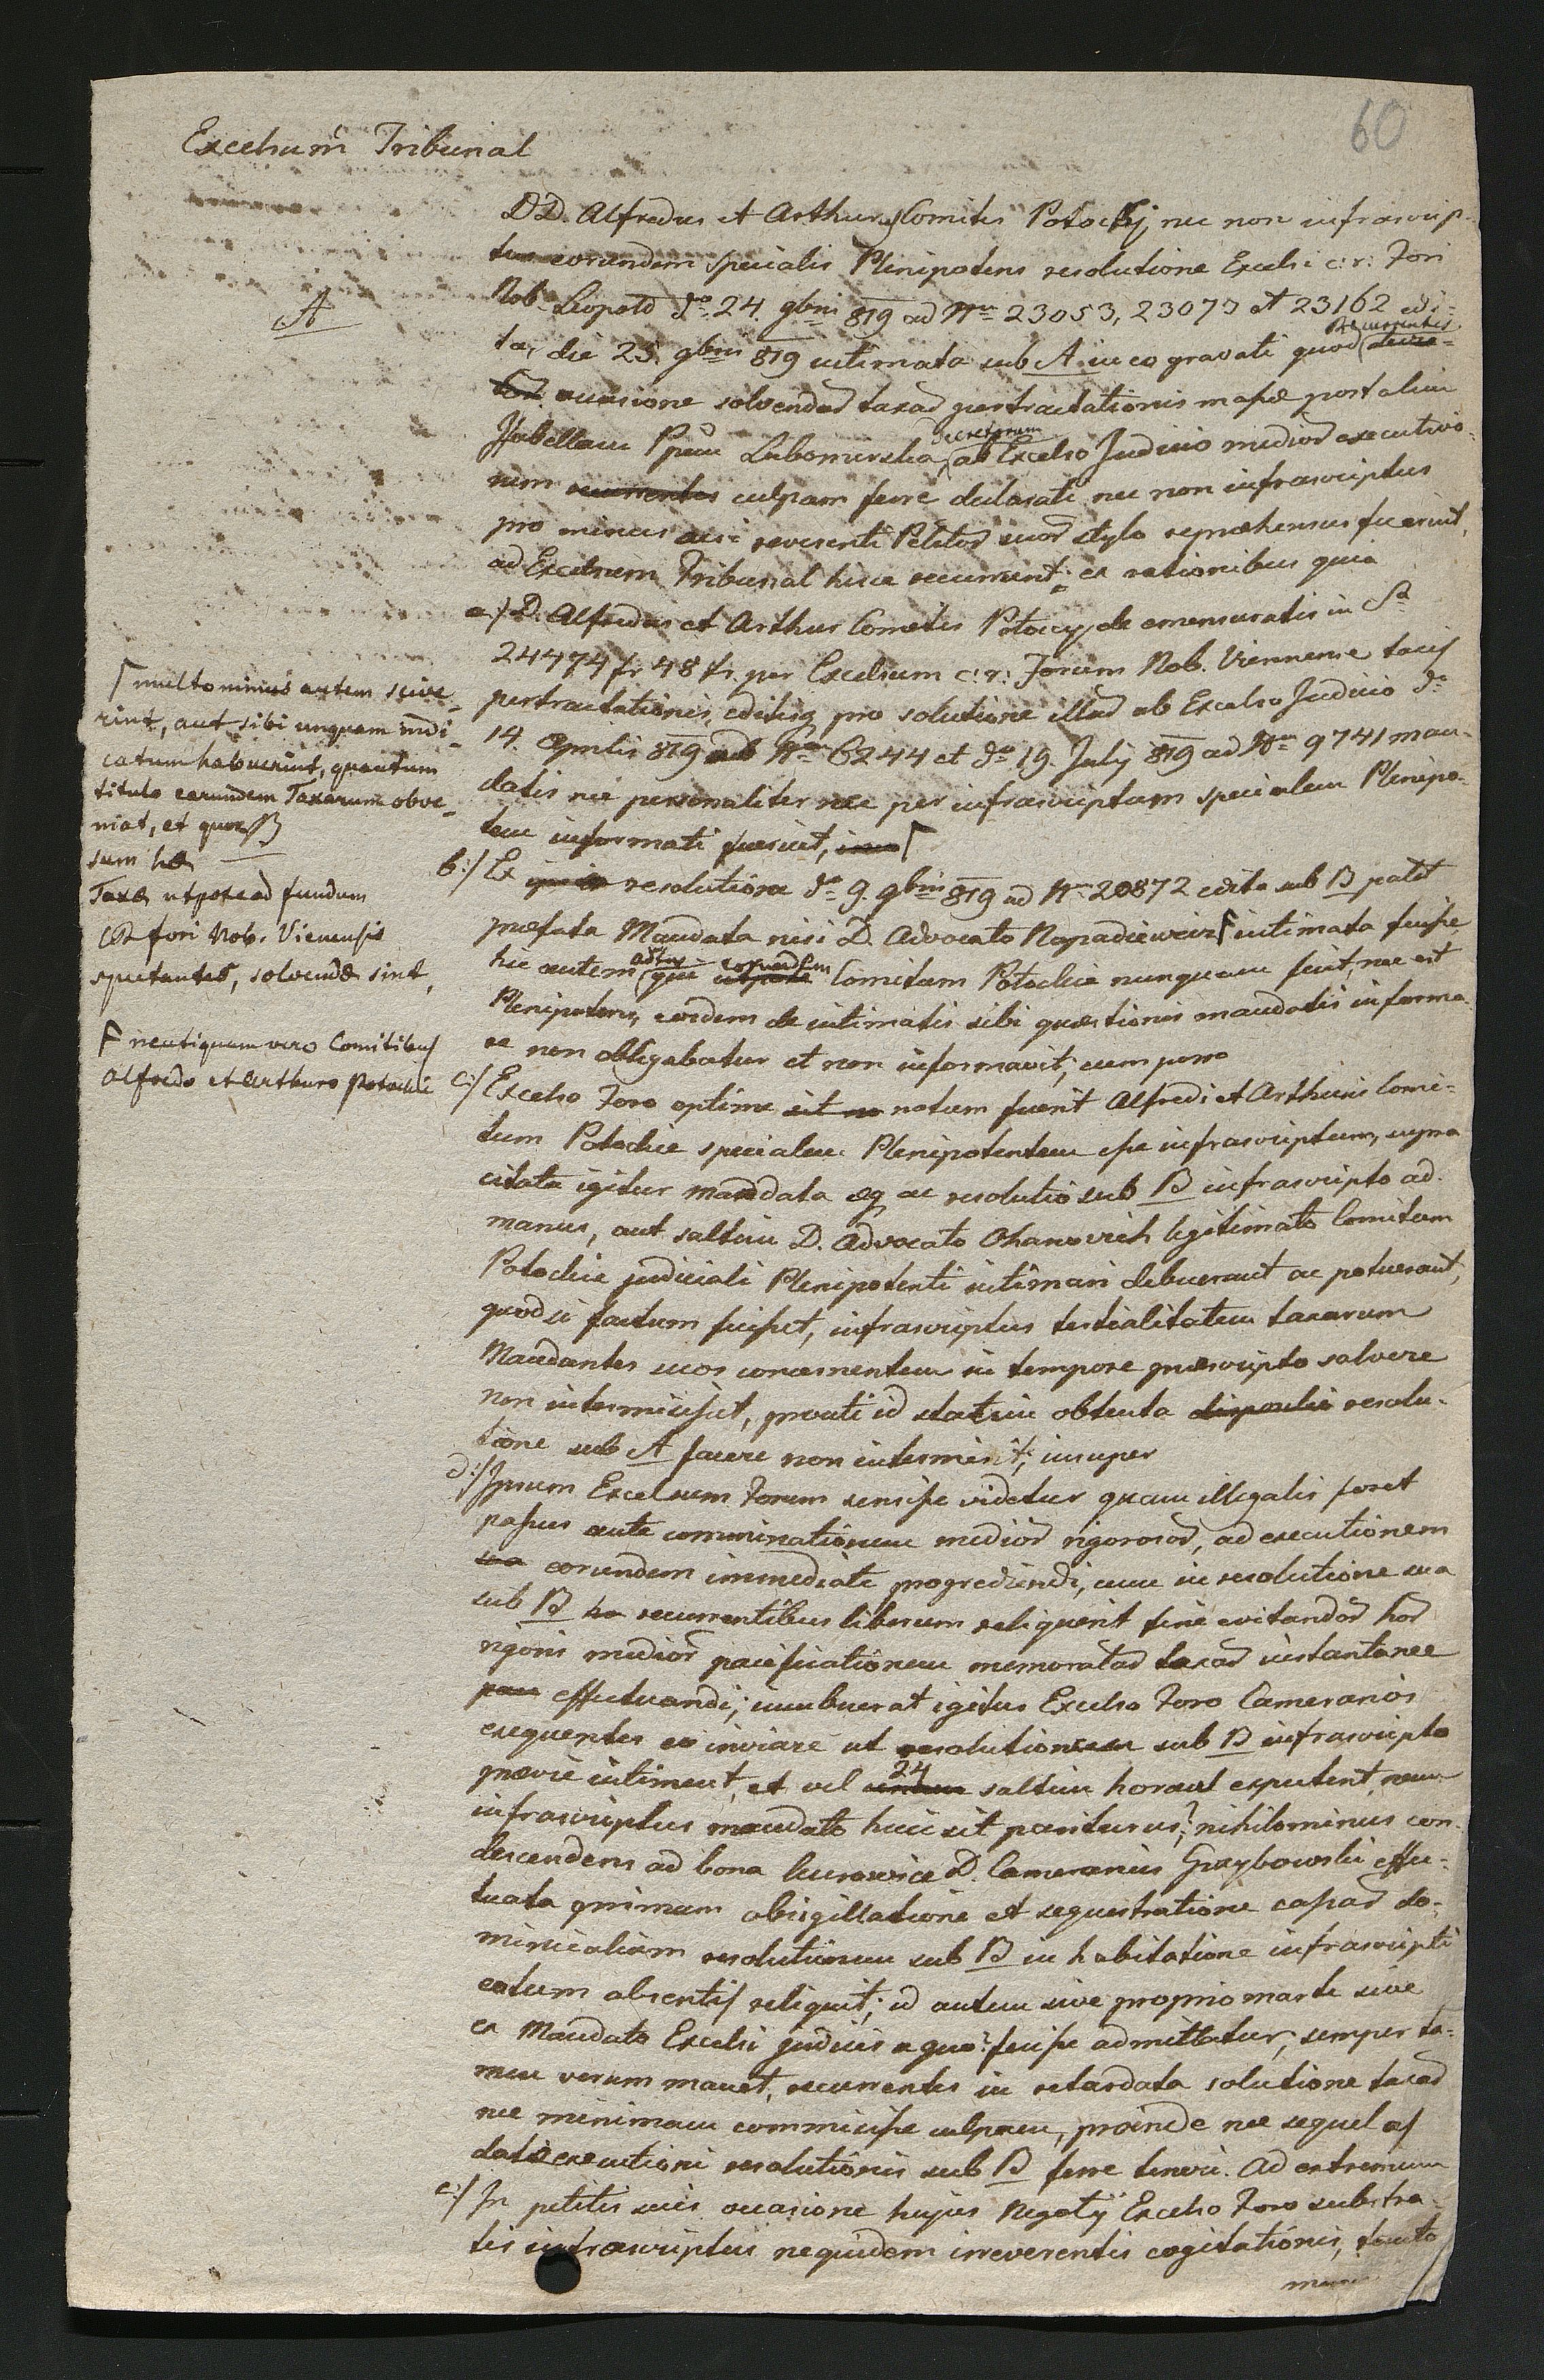 60
Excelsum Tribunal
DD. Alfredus et Arthurus Comites Potocky nec non infrascrip-
tus eorundem specialis Plenipotens resolutione Excelsi c: r: Fori
A
Nob. Leopold dto 24. 9bris 819 ad Nrum 23053, 23073 et 23162 edi-
ta, die 25. 9bris 819 intimata sub A. in eo gravati quod recurrentes
occasione solvendar taxar pertractationis massae post olim
Isabellam Ppem Lubomirska, decretorum ab Excelso Judicio medior executivo-
rum recurrentes culpam ferre declarati nec non infrascriptus
pro minus reverenti Petitor suor stylo repraehensus fuerint,
ad Excelsum Tribunal hisce recurrunt; ex rationibus quia
a:/ D. Alfredus et Arthur Comites Potoccy de emensuratis in Sa
24474 fr 48 xr. per Excelsum c: r: Forum Nob. Viennense taxis
pertractationis, editisq pro solutione illar ab Excelso Judicio dto
14. Aprilis 819 sub Nro 6244 et dto 19. July 819 ad Nrum 9741 man-
datis nec personaliter nec per infrascriptum specialem Plenipo-
tem informati fuerint,
multominus autem scive-
rint, aut sibi unquam indi-
catum habuerint, quantum
titulo earundem Taxarum obve-
niat, et quor
sum hae
Taxae utpote ad fundum
fori Nob. Vienensis
spectantes, solvendae sint,
b:/ Ex resolutione dto 9. 9bris 819 ad Nrum 20872 edita sub B patet
praefata Mandata nisi D. Advocato Napadiewicz intimata fuisse
hic autem qui Comitum Potockie nunquam fuit, nec est
Plenipotens, eosdem de intimatis sibi quaestionis mandatis informa-
re non obligabatur et non informavit; cum porro
F neutiquam vero Comitibus
Alfredo et Arthuro Potockie
c:/ Excelso Foro optime notum fuerit Alfredi et Arthuri Comi-
tum Potockie specialem Plenipotentem esse infrascriptum,
citata igitur mandata aeq ac resolutio sub B infrascripto ad
manus, aut saltim D. Advocato Ohanowich legitimato Comitum
Potockie judiciali Plenipotenti intimari debuerant ac potuerant,
quod si factum fuisset, infrascriptus tertialitatem taxarum
Mandantes suos concernentem in tempore praescripto solvere
non intermisisset, prouti id statim obtenta resolu-
tione sub A facere non intermisit; insuper
d:/ Ipsum Excelsum Forum sensisse videtur quam illegalis foret
passus ante comminationem medior rigorosor, ad executionem
eorundem immediate progrediendi, cum in resolutione sua
sub B recurrentibus liberum reliquerit fine evitandor hor
rigoris medior pacificationem memoratar taxar instantanee
effectuandi; incubuerat igitur Excelso Foro Camerarios
exequentes eo inviare ut resolutionem sub B infrascripto
praevie intiment, et vel 24 saltim horas expectent, num
infrascriptus mandato huic sit pariturus? nihilominus con-
descendens ad bona Kurowice D. Camerarius Grzybowski effec-
tuata primum obsigillatione et sequestratione cassar do-
minicalium resolutionem sub B in habitatione infrascripti
eatum absentis reliquit; id autem sive proprio marte sive
ex Mandato Excelsi judicii a quo? fuisse admittatur, semper ta-
men verum manet, recurrentes in retardata solutione taxar
nec minimam commisisse culpam, proinde nec sequelas
datae executioni resolutionis sub B ferre teneri. Ad extremum
e:/ In petitis suis occasione hujus Negotij Excelso Foro substra-
tis infrascriptus nequidem irreverentis cogitationis, tanto